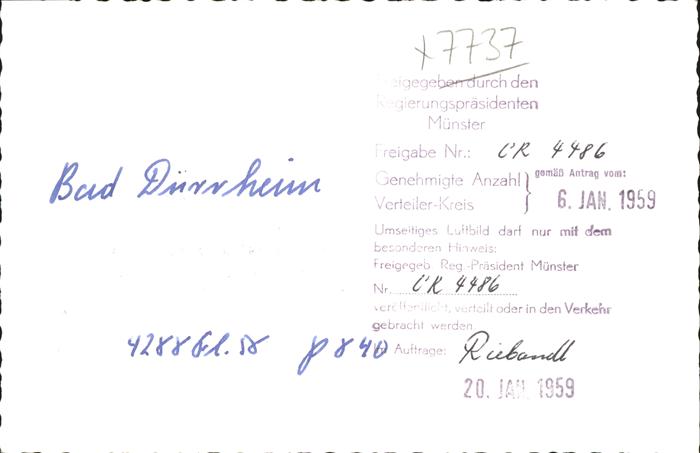 x7737
Freigegeben durch den
Regierungspräsidenten
Münster
Freigabe Nr.: CR 4486
Genehmigte Anzahl } gemäß Antrag vom:
Verteiler-Kreis 6. JAN. 1959
Bad Dürrheim
Umseitiges Luftbild darf nur mit dem
besonderen Hinweis:
Freigegeb. Reg.-Präsident Münster
Nr. CR 4486
veröffentlicht, verteilt oder in den Verkehr
gebracht werden.
4288 Fl. 58 p 840
Im Auftrage:
20. JAN. 1959